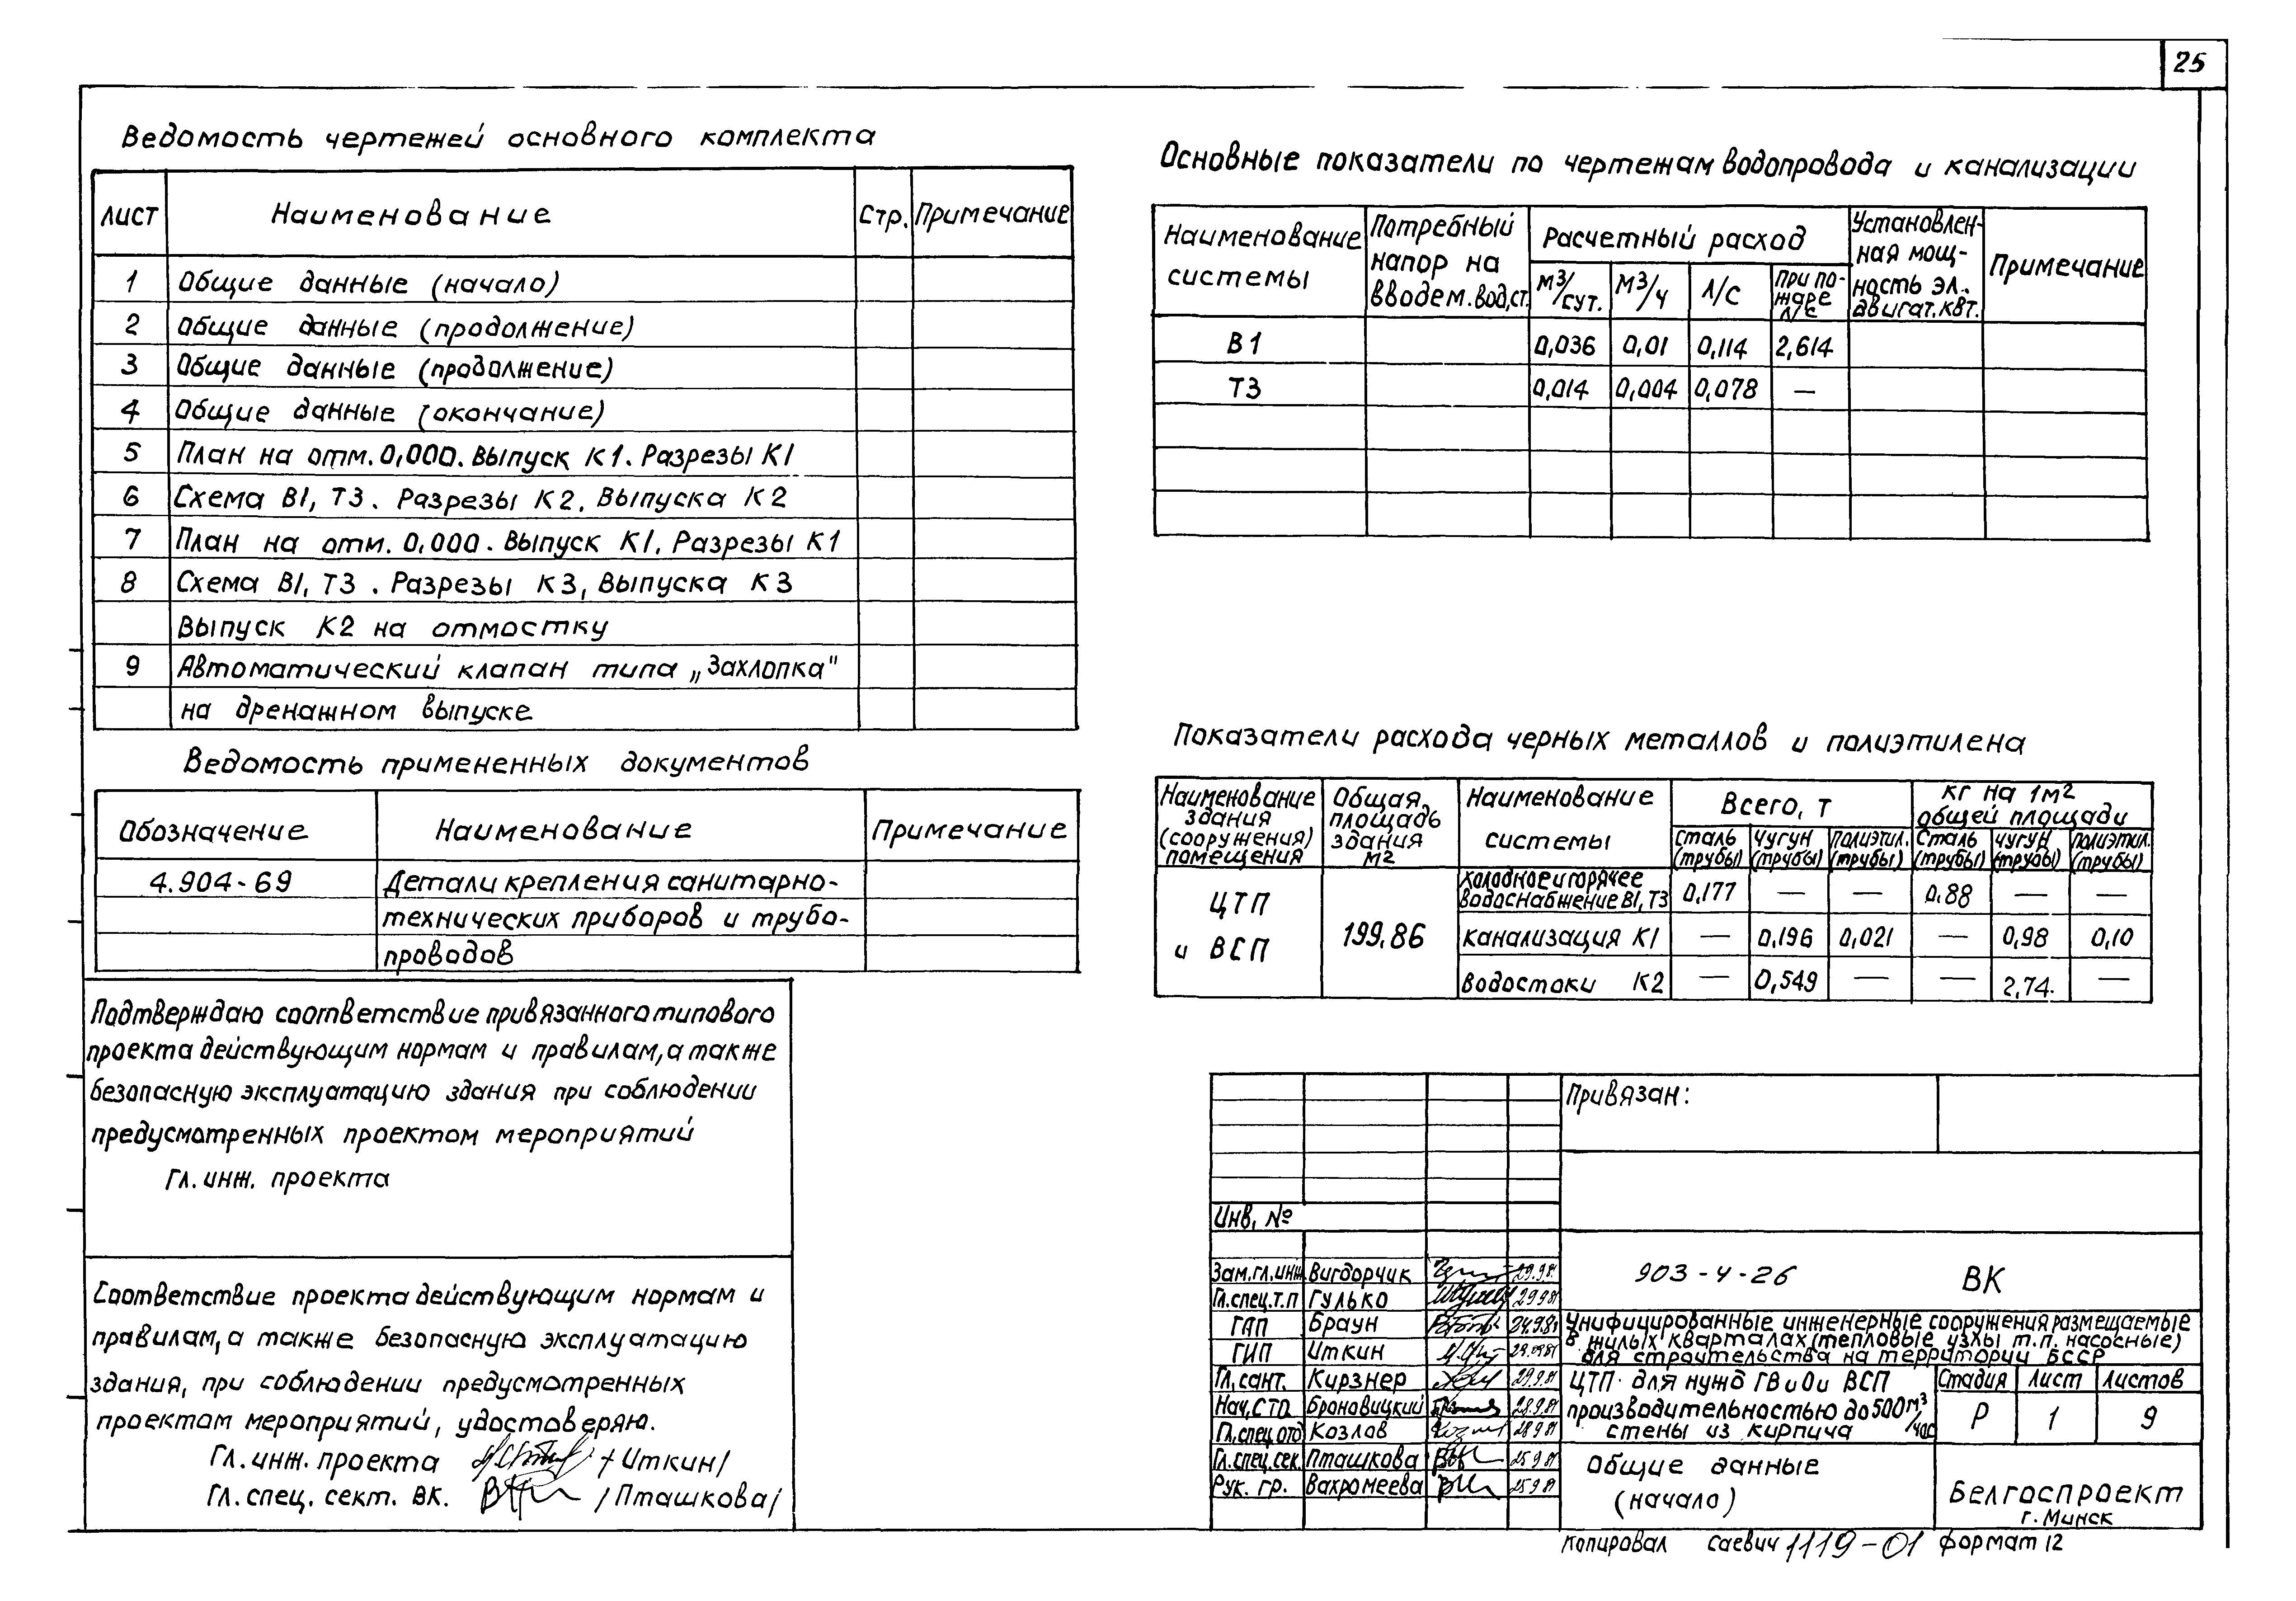 25
Ведомость чертежей основного комплекта
Лист Наименование Стр. Примечание
1 Общие данные (начало)
2 Общие данные (продолжение)
3 Общие данные (продолжение)
4 Общие данные (окончание)
5 План на отм. 0,000. Выпуск К1. Разрезы К1
6 Схема В1, Т3. Разрезы К2, Выпуска К2
7 План на отм. 0,000. Выпуск К1, Разрезы К1
8 Схема В1, Т3. Разрезы К3, Выпуска К3
Выпуск К2 на отмостку
9 Автоматический клапан типа „Захлопка"
на дренажном выпуске
Ведомость примененных документов
Обозначение Наименование Примечание
4.904-69 Детали крепления санитарно-
технических приборов и трубо-
проводов
Подтверждаю соответствие привязанного типового
проекта действующим нормам и правилам, а также
безопасную эксплуатацию здания при соблюдении
предусмотренных проектом мероприятий
Гл. инж. проекта
Соответствие проекта действующим нормам и
правилам, а также безопасную эксплуатацию
здания, при соблюдении предусмотренных
проектом мероприятий, удостоверяю.
Гл. инж. проекта /Иткин/
Гл. спец. сект. ВК. /Пташкова/
Основные показатели по чертежам водопровода и канализации
Наименование системы
Потребный напор на вводе м. вод. ст.
Расчетный расход
м3/сут. м3/ч л/с при пожаре л/с
Установлен-ная мощ-ность эл. двигат. квт.
Примечание
В1 0,036 0,01 0,114 2,614
Т3 0,014 0,004 0,078 —
Показатели расхода черных металлов и полиэтилена
Наименование здания (сооружения) помещения
Общая площадь здания м2
Наименование системы
Всего, т
кг на 1м2 общей площади
Сталь (трубы) Чугун (трубы) Полиэтил. (трубы) Сталь (трубы) Чугун (трубы) Полиэтил. (трубы)
ЦТП и ВСП 199,86
Холодное и горячее водоснабжение В1, Т3 0,177 — — 0,88 — —
Канализация К1 — 0,196 0,021 — 0,98 0,10
Водостоки К2 — 0,549 — — 2,74. —
Привязан:
Инв. №
Зам. гл. инж. Вигдорчик 29.9.81
Гл. спец. т.п Гулько 29.9.81
ГАП Браун 24.9.81
ГИП Иткин 29.09.81
Гл. сант. Кирзнер 29.9.81
Нач. СТО Броновицкий 28.9.81
Гл. спец. отд Козлов 28.9.81
Гл. спец. сек. Пташкова 25.9.81
Рук. гр. Вахромеева 25.9.81
903-4-26 ВК
Унифицированные инженерные сооружения размещаемые
в жилых кварталах (тепловые узлы т.п. насосные)
для строительства на территории БССР
ЦТП для нужд ГВ и О и ВСП
производительностью до 500 м3/час
стены из кирпича
Стадия Лист Листов
Р 1 9
Общие данные
(начало)
Белгоспроект
г. Минск
Копировал Саевич 1119-01 формат 12